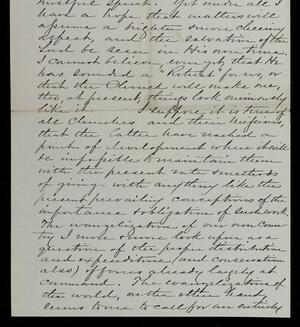 trustful spirit. Yet under all I
have a hope that matters will
assume a brighter & more cheering
aspect, and the salvation of the
Lord be seen in His own time.
I cannot believe even yet, that He
has sounded a "Retreat" for us, or
that the Church will make one,
tho', at present, things look ominously
like it. I suppose it is true of
all Churches and their Missions,
that the latter have reached a
point of development where it will
be impossible to maintain them
with the present rate & methods
of giving - with anything like the
present prevailing conceptions of the
importance & obligation of such work.
The evangelization of our own coun-
try I more & more look upon as a
question of the proper distribution
and expenditure (and conservation
also) of forces already largely at
command. The evangelization of
the world, on the other hand
seems to me to call for an entirely